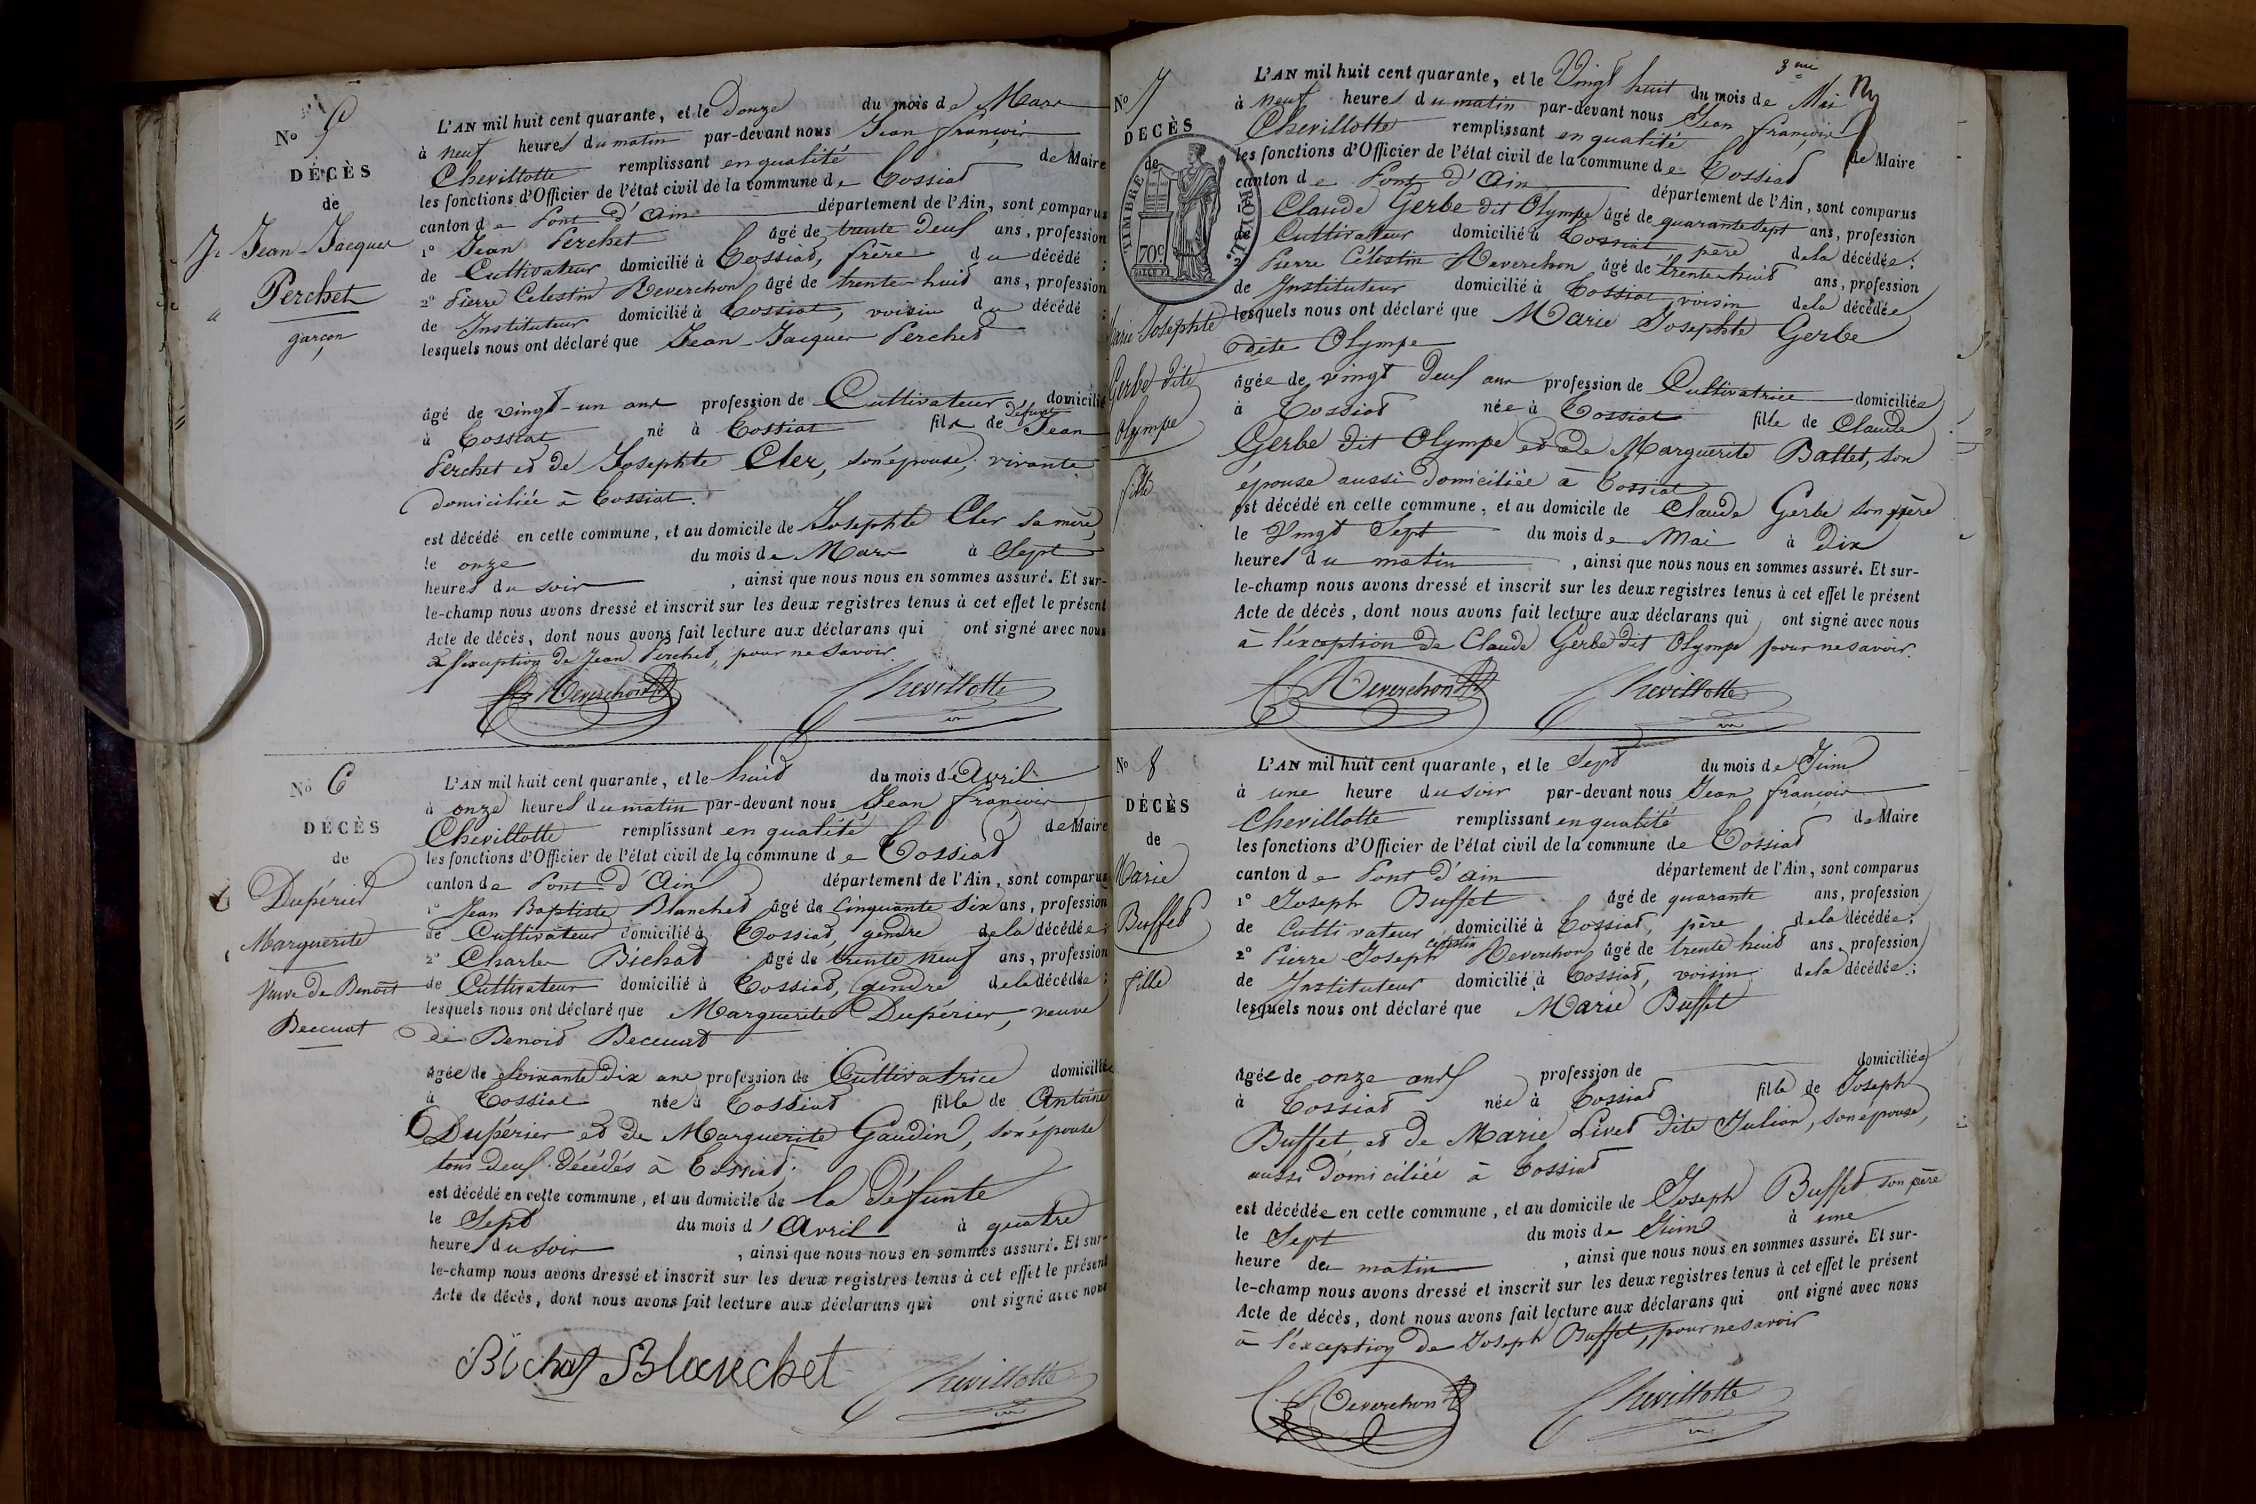 N.º 5
DÉCÈS
de
Jean-Jacques
Perchet
garçon
L'AN mil huit cent quarante, et le Douze du mois de Mars
à neuf heures du matin par-devant nous Jean françois
Chevillotte remplissant en qualité de Maire
les fonctions d'Officier de l'état civil de la commune de Tossiat
canton de Pont d'Ain département de l'Ain, sont comparus
1º Jean Perchet âgé de trente deux ans, profession
de Cultivateur domicilié à Tossiat, frère du décédé ;
2º Pierre Celestin Reverchon âgé de trente huit ans, profession
de Instituteur domicilié à Tossiat, voisin du décédé ;
lesquels nous ont déclaré que Jean-Jacques Perchet
âgé de vingt-un ans profession de Cultivateur domicilié
à Tossiat né à Tossiat fils de défunt Jean
Perchet et de Josephte Cler, son épouse, vivante
domiciliée à Tossiat.
est décédé en cette commune, et au domicile de Josephte Cler sa mère,
le onze du mois de Mars à Sept
heures du soir , ainsi que nous nous en sommes assuré. Et sur-
le-champ nous avons dressé et inscrit sur les deux registres tenus à cet effet le présent
Acte de décès, dont nous avons fait lecture aux déclarans qui ont signé avec nous
à l'exception de Jean Perchet, pour ne savoir.
Reverchon Chevillotte
Nº 6
DÉCÈS
de
Dupérier
Marguerite
Veuve de Benoit
Beccuat
L'AN mil huit cent quarante, et le huit du mois d'Avril
à onze heures du matin par-devant nous Jean françois
Chevillotte remplissant en qualité de Maire
les fonctions d'Officier de l'état civil de la commune de Tossiat
canton de Pont d'Ain département de l'Ain, sont comparus
1º Jean Baptiste Blanchet âgé de Cinquante Six ans, profession
de Cultivateur domicilié à Tossiat, gendre de la décédée ;
2º Charles Bichat âgé de trente neuf ans, profession
de Cultivateur domicilié à Tossiat, gendre de la décédée ;
lesquels nous ont déclaré que Marguerite Dupérier, veuve
de Benoit Beccuat
âgée de Soixante Dix ans profession de Cultivatrice domiciliée
à Tossiat née à Tossiat fille de Antoine
Dupérier et de Marguerite Gaudin, son épouse
tous deux décédés à Tossiat.
est décédé en cette commune, et au domicile de la Défunte
le Sept du mois d'Avril à quatre
heures du soir , ainsi que nous nous en sommes assuré. Et sur-
le-champ nous avons dressé et inscrit sur les deux registres tenus à cet effet le présent
Acte de décès, dont nous avons fait lecture aux déclarans qui ont signé avec nous
Bichat Blanchet Chevillotte
3me
Nº 7
DÉCÈS
de
TIMBRE ROYAL
70c.
Marie Josephte
Gerbe dite
Olympe
fille
L'AN mil huit cent quarante, et le Vingt huit du mois de Mai
à neuf heures du matin par-devant nous Jean françois
Chevillotte remplissant en qualité de Maire
les fonctions d'Officier de l'état civil de la commune de Tossiat
canton de Pont d'Ain département de l'Ain, sont comparus
Claude Gerbe dit Olympe âgé de quarante sept ans, profession
Cultivateur domicilié à Tossiat père de la décédée ;
Pierre Célestin Reverchon âgé de trente huit ans, profession
de Instituteur domicilié à Tossiat, voisin de la décédée
lesquels nous ont déclaré que Marie Josephte Gerbe
dite Olympe
âgée de vingt deux ans profession de Cultivatrice domiciliée
à Tossiat née à Tossiat fille de Claude
Gerbe dit Olympe et de Marguerite Ballet, son
épouse aussi domiciliée à Tossiat
est décédé en cette commune, et au domicile de Claude Gerbe son père
le Vingt Sept du mois de Mai à Dix
heures du matin , ainsi que nous nous en sommes assuré. Et sur-
le-champ nous avons dressé et inscrit sur les deux registres tenus à cet effet le présent
Acte de décès, dont nous avons fait lecture aux déclarans qui ont signé avec nous
à l'exception de Claude Gerbe dit Olympe pour ne savoir.
Reverchon Chevillotte
Nº 8
DÉCÈS
de
Marie
Buffet
fille
L'AN mil huit cent quarante, et le Sept du mois de Juin
à une heure du soir par-devant nous Jean françois
Chevillotte remplissant en qualité de Maire
les fonctions d'Officier de l'état civil de la commune de Tossiat
canton de Pont d'ain département de l'Ain, sont comparus
1º Joseph Buffet âgé de quarante ans, profession
de Cultivateur domicilié à Tossiat, père de la décédée ;
2º Pierre Joseph celestin Reverchon âgé de trente huit ans profession
de Instituteur domicilié à Tossiat, voisin de la décédée ;
lesquels nous ont déclaré que Marie Buffet
âgée de onze ans profession de domiciliée
à Tossiat née à Tossiat fille de Joseph
Buffet, et de Marie Livet dite Julian, son épouse,
aussi domiciliée à Tossiat
est décédée en cette commune, et au domicile de Joseph Buffet son père
le Sept du mois de Juin à une
heure du matin , ainsi que nous nous en sommes assuré. Et sur-
le-champ nous avons dressé et inscrit sur les deux registres tenus à cet effet le présent
Acte de décès, dont nous avons fait lecture aux déclarans qui ont signé avec nous
à l'exception de Joseph Buffet, pour ne savoir
Reverchon Chevillotte